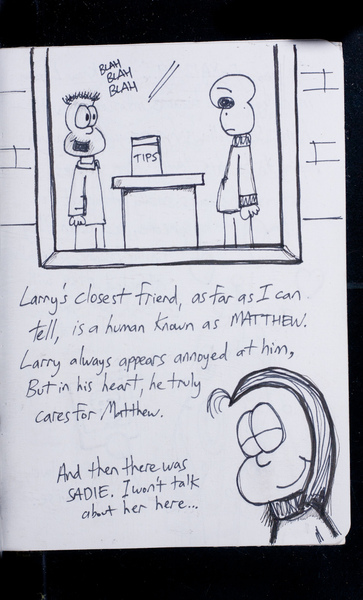 BLAH
BLAH
BLAH
TIPS
Larry's closest friend, as far as I can
tell, is a human known as MATTHEW.
Larry always appears annoyed at him,
But in his heart, he truly
cares for Matthew.
And then there was
SADIE. I won't talk
about her here...